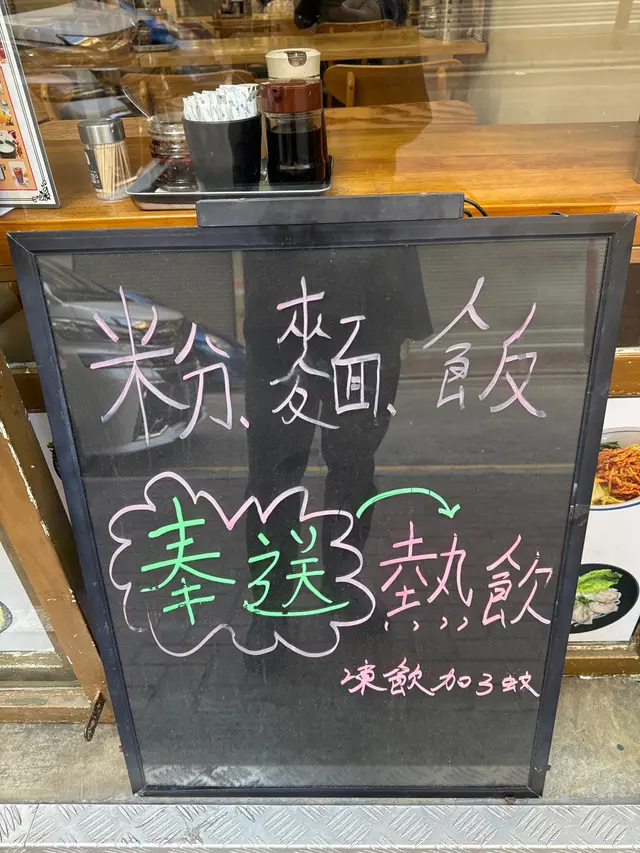 粉、麵、飯
奉送 熱飲
凍飲加3蚊